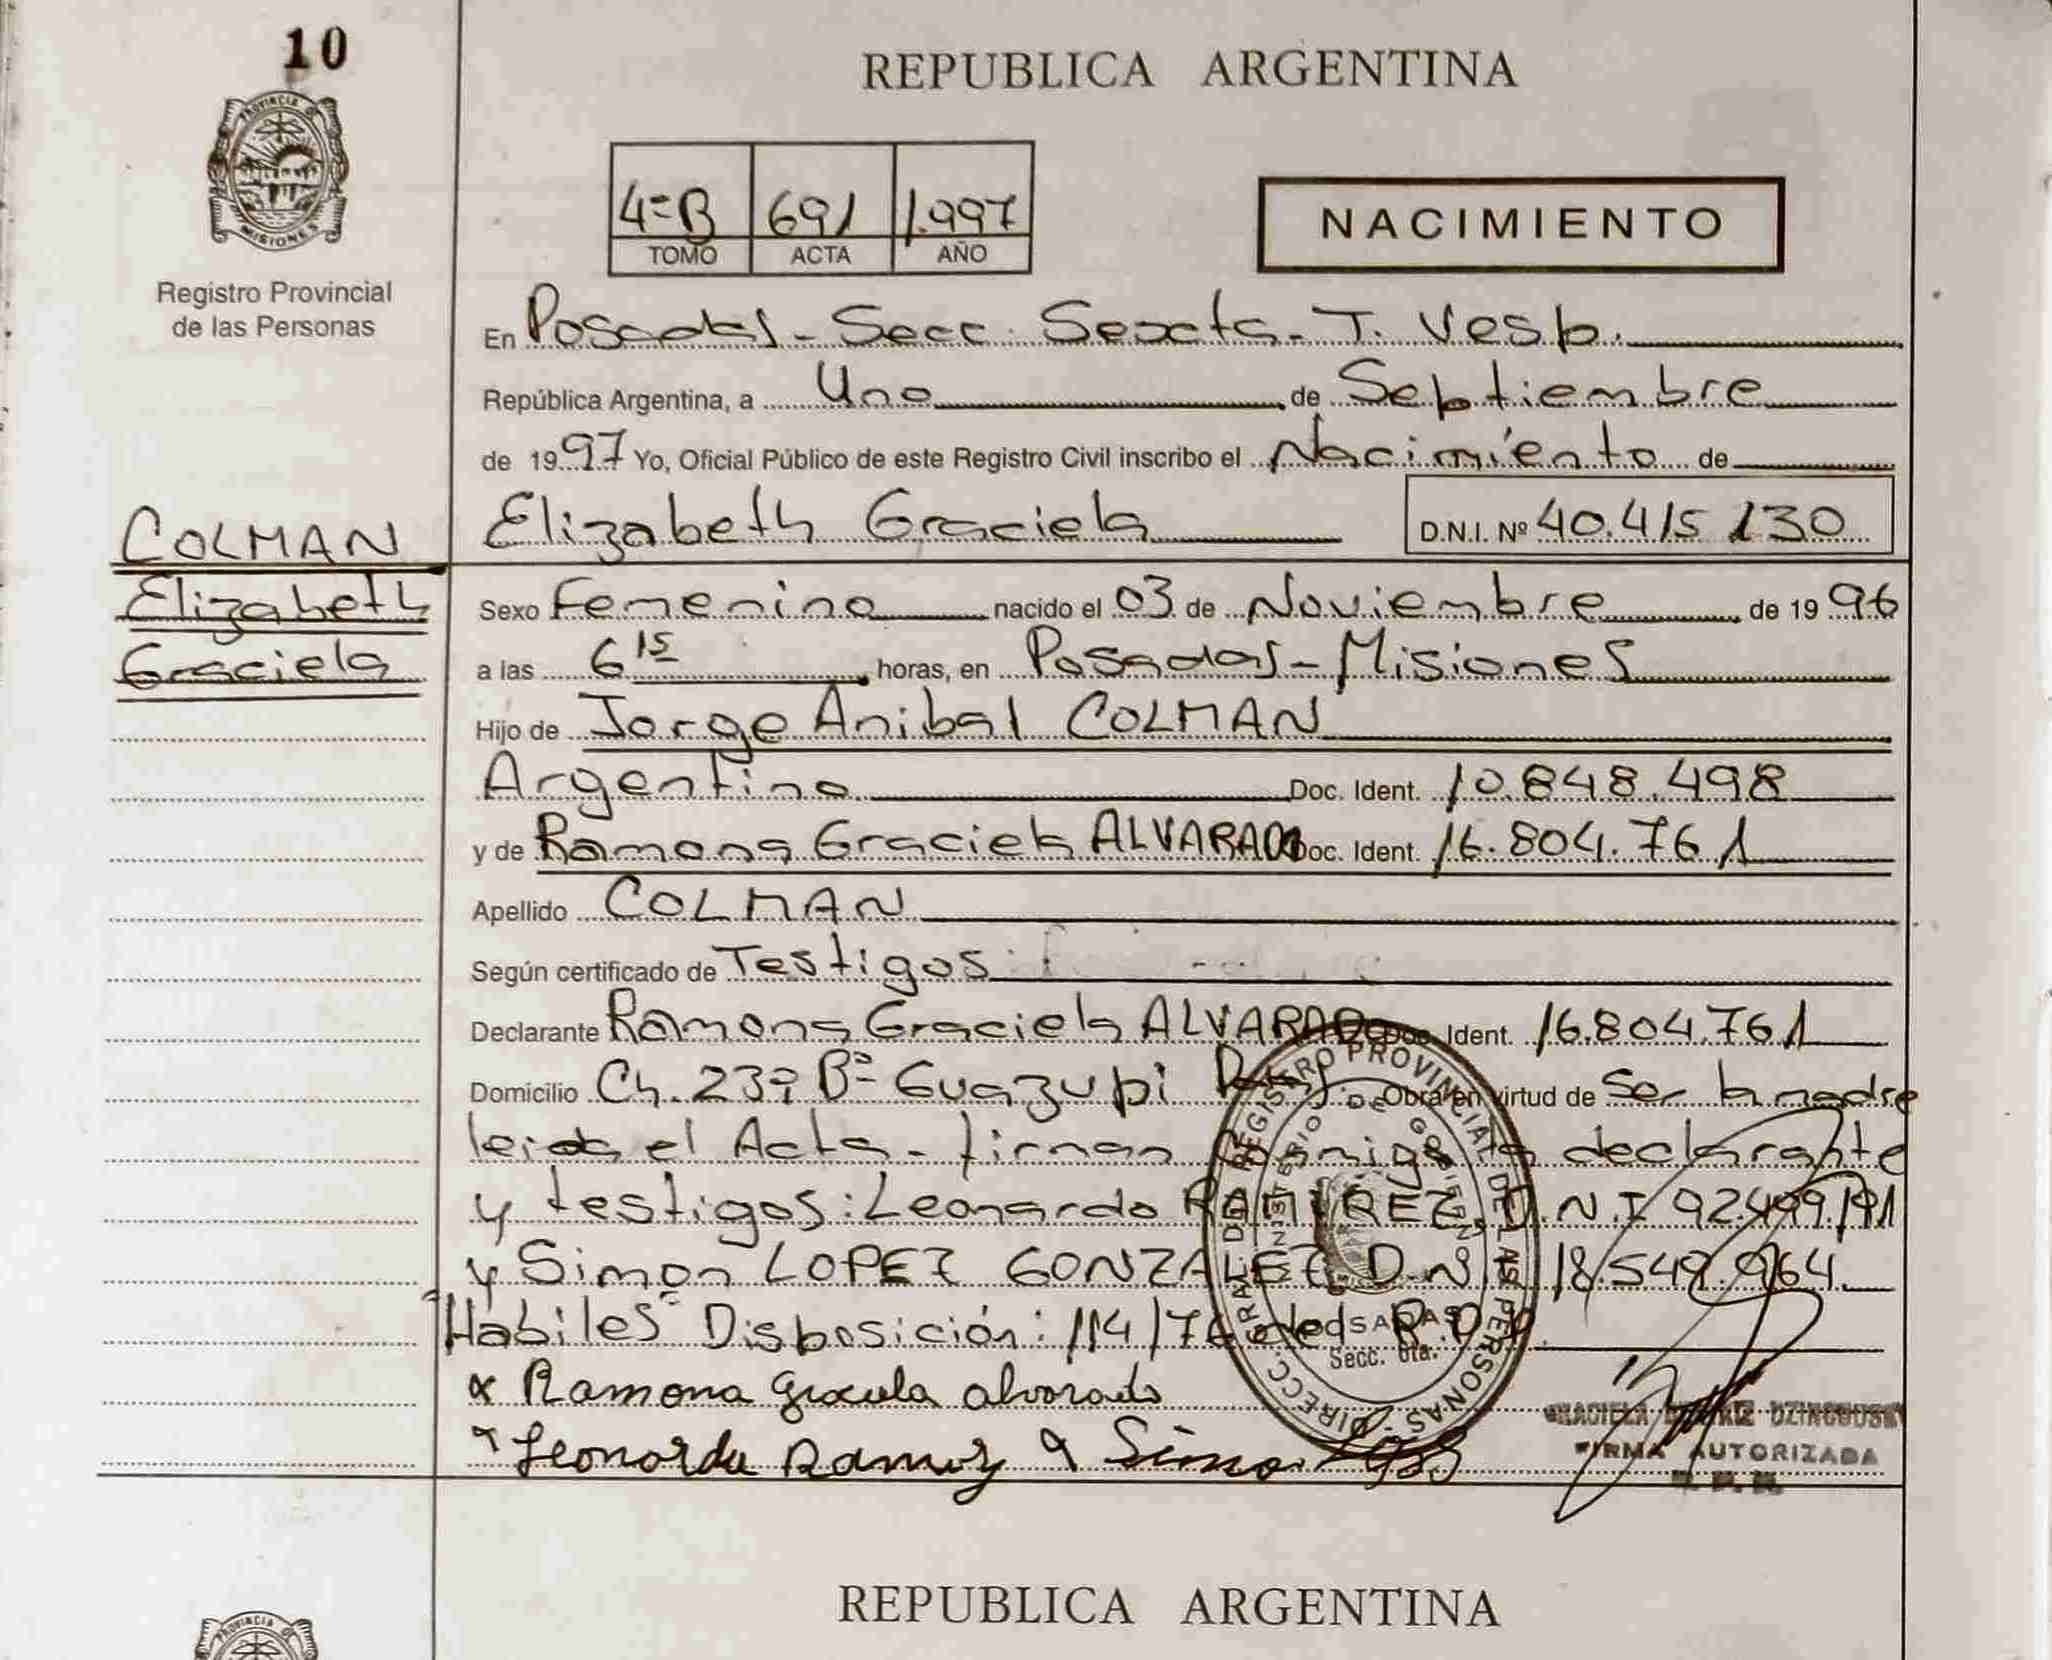 10
REPUBLICA ARGENTINA
PROVINCIA DE
MISIONES
Registro Provincial
de las Personas
4ºB 691 1.997
TOMO ACTA AÑO
NACIMIENTO
En Posadas - Secc. Sexta - T. Vesp.
República Argentina, a Uno de Septiembre
de 1997 Yo, Oficial Público de este Registro Civil inscribo el Nacimiento de
Elizabeth Graciela D.N.I. Nº 40.415 130
COLMAN
Elizabeth
Graciela
Sexo Femenino nacido el 03 de Noviembre de 1996
a las 6 15 horas, en Posadas - Misiones
Hijo de Jorge Anibal COLMAN
Argentino Doc. Ident. 10.848.498
y de Ramona Graciela ALVARADO Doc. Ident. 16.804.761
Apellido COLMAN
Según certificado de Testigos
Declarante Ramona Graciela ALVARADO Doc. Ident. 16.804.761
Domicilio Ch. 239 Bº Guazupi Pdas. Obra en virtud de Ser la madre
leida el Acta - firman conmigo la declarante
y testigos: Leonardo RAMIREZ, D.N.I 92.499.191
y Simon LOPEZ GONZALEZ D.N.I 18.549.964.
Habiles Disposición: 114/76 del R.P.P.
x Ramona Graciela Alvarado
x Leonardo Ramirez x Simon
DIRECC. GRAL. DEL REGISTRO PROVINCIAL DE LAS PERSONAS
MINISTERIO DE GOBIERNO
POSADAS
Secc. 6ta.
GRACIELA BEATRIZ
FIRMA AUTORIZADA
REPUBLICA ARGENTINA
PROVINCIA DE